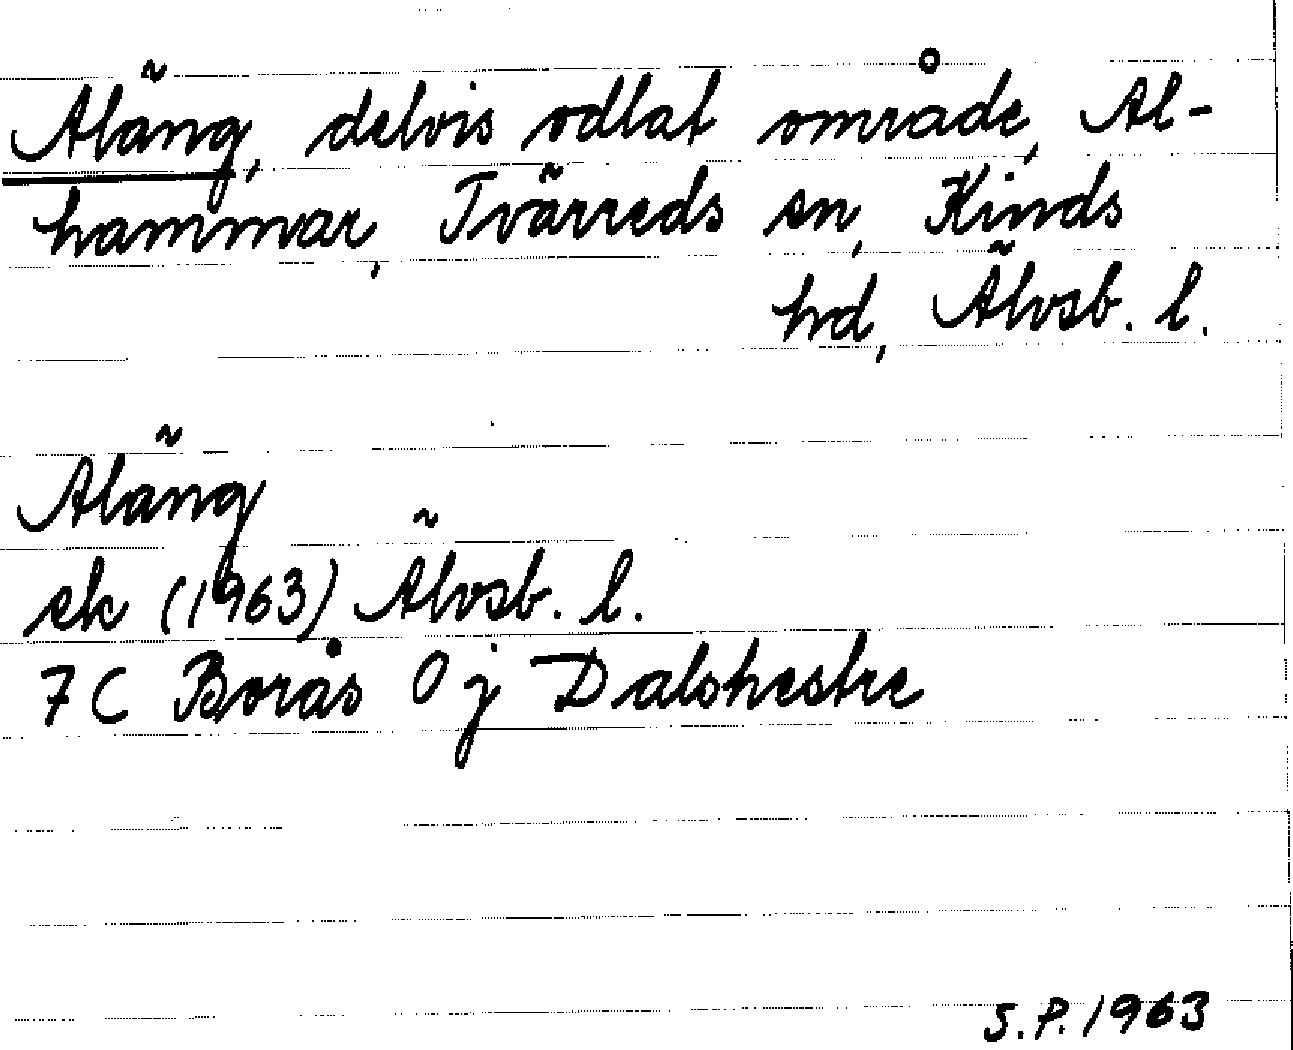 Aläng, delvis odlat område, Al-
hammar, Tvärreds sn, Kinds
hd, Älvsb. l.
Aläng
ek (1963) Älvsb. l.
7 C Borås 0 j Dalshestre
S.P. 1963